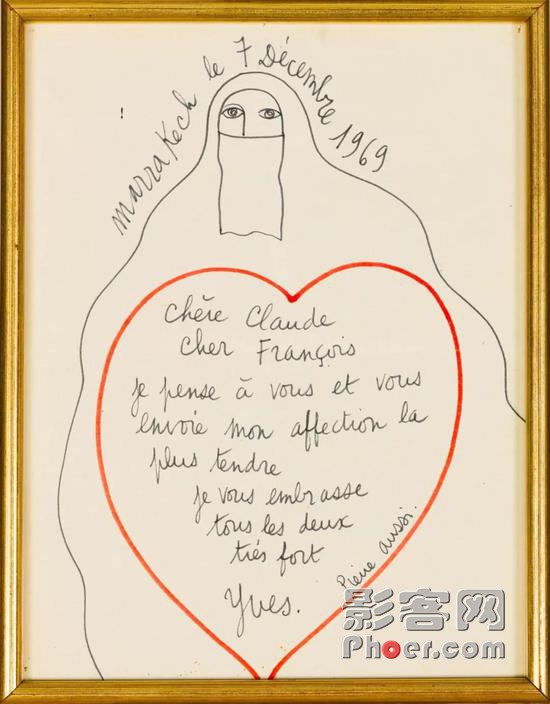 Marrakech le 7 Décembre 1969
Chère Claude
Cher François
je pense à vous et vous
envoie mon affection la
plus tendre
je vous embrasse
tous les deux
très fort
Yves.
Pierre aussi.
影客网
Phoer.com